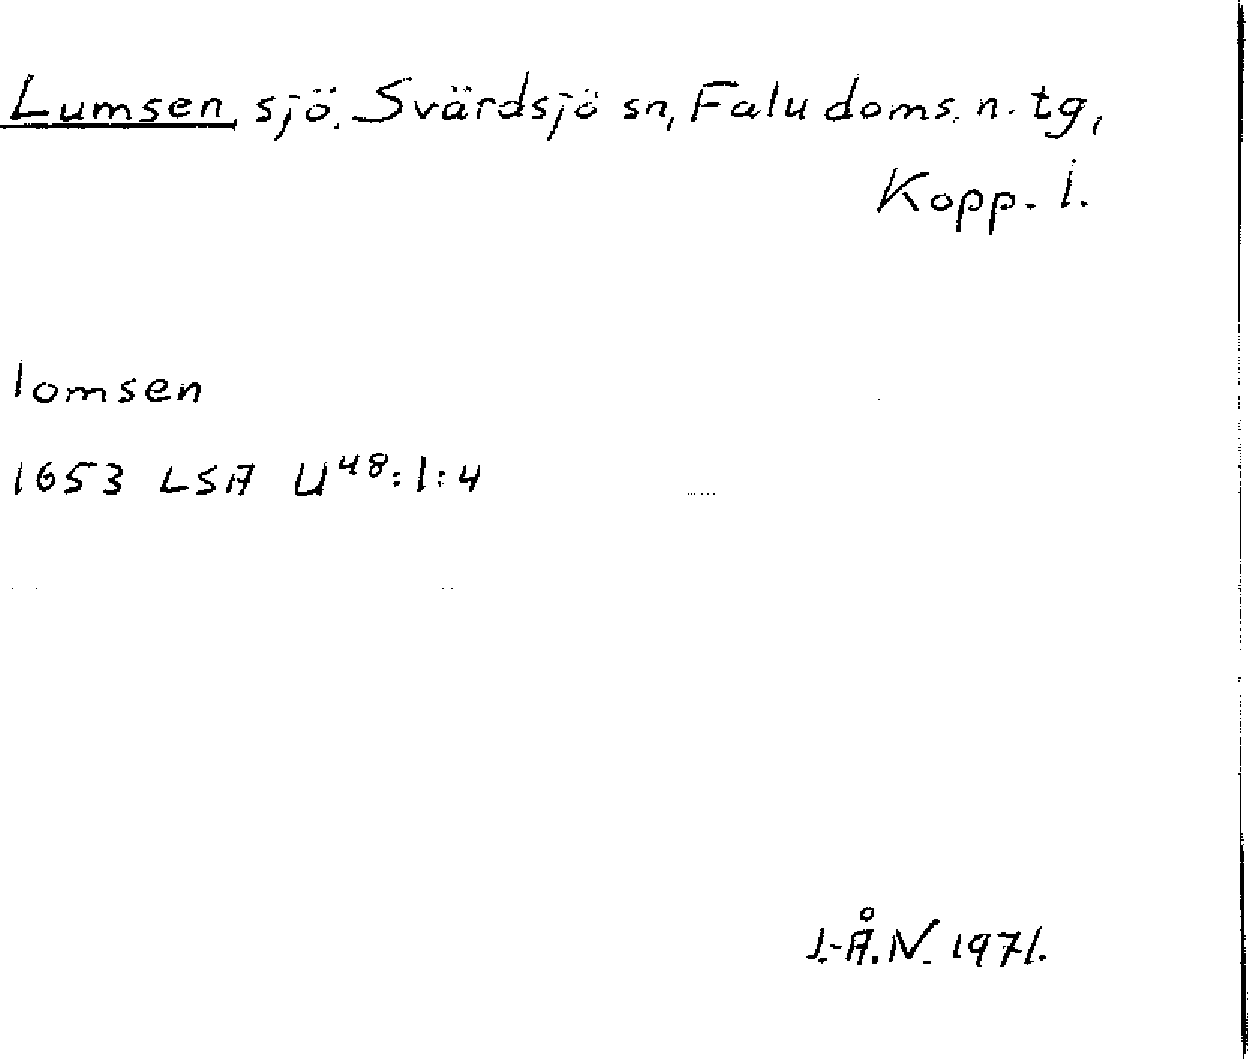 Lumsen, sjö. Svärdsjö sn, Falu doms. n. tg,
Kopp. l.
lomsen
1653 LSA U48:1:4
J.-Å.N. 1971.